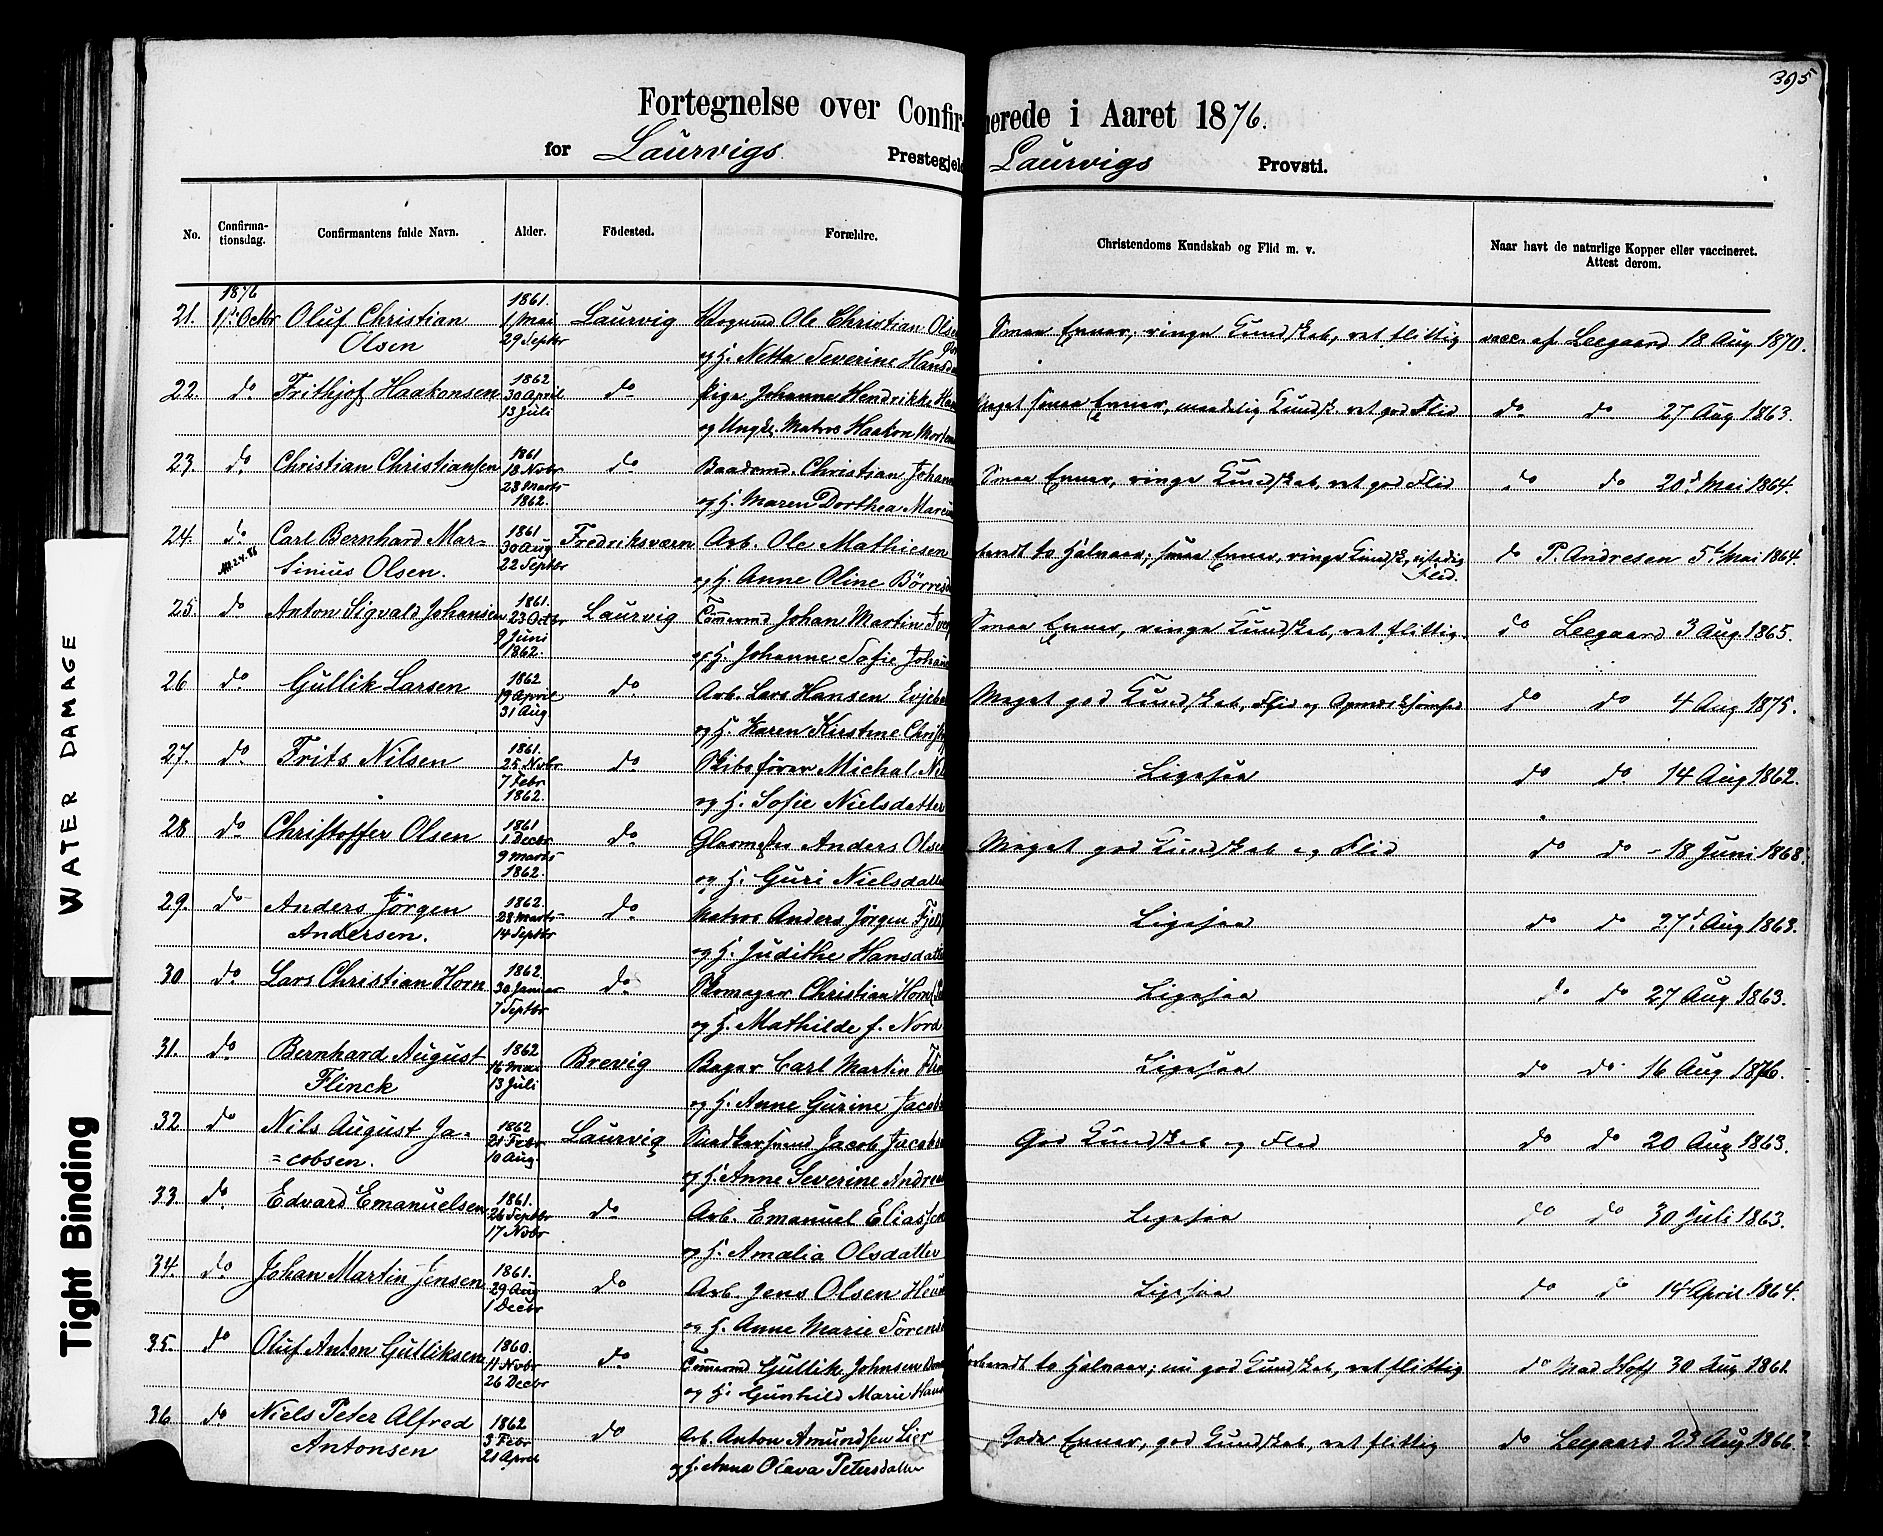 395
Fortegnelse over Confir- merede i Aaret 1876.
for Laurvigs Prestegjeld Laurvigs Provsti.
No. Confirma-tionsdag. Confirmantens fulde Navn. Alder. Födested. Forældre. Christendoms Kundskab og Flid m. v. Naar havt de naturlige Kopper eller vaccineret. Attest derom.
1876
21. 1ste Octbr Oluf Christian 1861. 1 Mai 29 Septbr Laurvig Ole Christian Olsen Smaa Evner, ringe Kundskab, ret flittig vacc. af Leegaard 18 Aug 1870.
Olsen og H. Netta Severine Hansd
22. do Frithjof Haakonsen 1862 30 April 13 Juli do Pige Johanne Hendrikke Han Meget smaa Evner, maadelig Kundsk. ret god Flid do do 27 Aug 1863.
og Ungk. Matros Haakon Morten
23. do Christian Christiansen 1861 18 Novbr 23 Marts 1862. do Baadsmd. Christian Johann Smaa Evner, ringe Kundskab, ret god Flid do do 20d Mai 1864.
og H. Maren Dorthea Marcu
24. do Carl Bernhard Mar- 1861 30 Aug 22 Septbr Fredriksværn Arb. Ole Mathiesen to Halvaar; smaa Evner, ringe Kundsk, Flid. do P. Andresen 5t Mai 1864.
tinius Olsen. og H. Anne Oline Börresd
25. do Anton Sigvald Johansen 1861. 23 Octbr 9 Juni 1862. Laurvig Tömmermd Johan Martin Iver Smaa Evner, ringe Kundskab, ret flittig. do Leegaard 3 Aug. 1865.
og H. Johanne Sofie Johan
26 do Gullik Larsen 1862 19 April 31 Aug do Arb. Lars Hansen Evje Meget god Kundskab, Flid og Opmærksomhed do do 4 Aug 1875.
og H. Karen Kirstine Christ
27. do Frits Nilsen 1861. 25 Novbr 7 Febr 1862. do Skibsförer Michal Nil Ligesaa do do 14 Aug 1862.
og H. Sofie Nielsdatter
28 do Christoffer Olsen 1861 1 Decbr 9 Marts 1862. do Glasmester Anders Olsen Meget god Kundskab og Flid do do - 18 Juni 1868.
og H. Guri Nielsdatte
29. do Anders Jörgen 1862. 28 Marts 14 Septbr do Matros Anders Jörgen Fjell Ligesaa do do 27d Aug 1863.
Andersen. og H. Judithe Hansdatte
30 do Lars Christian Horn 1862. 30 Januar 7 Septbr do Skomager Christian Horn Ligesaa do do 27 Aug 1863.
og H. Mathilde f. Nord
31. do Bernhard August 1862 16 Mai 13 Juli Brevig Bager Carl Martin Flin Ligesaa do do 16 Aug 1876.
Flinck og H. Anne Gurine Jacob
32 do Nils August Ja= 1862 21 Febr 10 Aug. Laurvig Jacob Jacobse God Kundskab og Flid do do 20 Aug 1863.
=cobsen. og H. Anne Severine Andrea
33. do Edvard Emanuelsen 1861. 26 Septbr 17 Novbr do Arb. Emanuel Eliassen Ligesaa do do 30 Juli 1863.
og H. Amalia Olsdatter
34. do Johan Martin Jensen 1861. 29 Aug 1 Decbr do Arb. Jens Olsen Ligesaa do do 14 April 1864.
og H. Anne Marie Sörens
35. do Oluf Anton Gulliksen 1860. 11 Novbr 26 Decbr do Tömmermd Gullik Johnsen to Halvaar; nu god Kundskab, ret flittig do Mad Hoff 30 Aug 1861.
og H. Gunhild Marie Hans
36 do Niels Peter Alfred 1862 3 Febr 21 April do Arb. Anton Amundsen Lier Gode Evner, god Kundskab, ret flittig do Leegaard 23 Aug 1866.
Antonsen og H. Anne Olava Petersdatter
WATER DAMAGE
Tight Binding